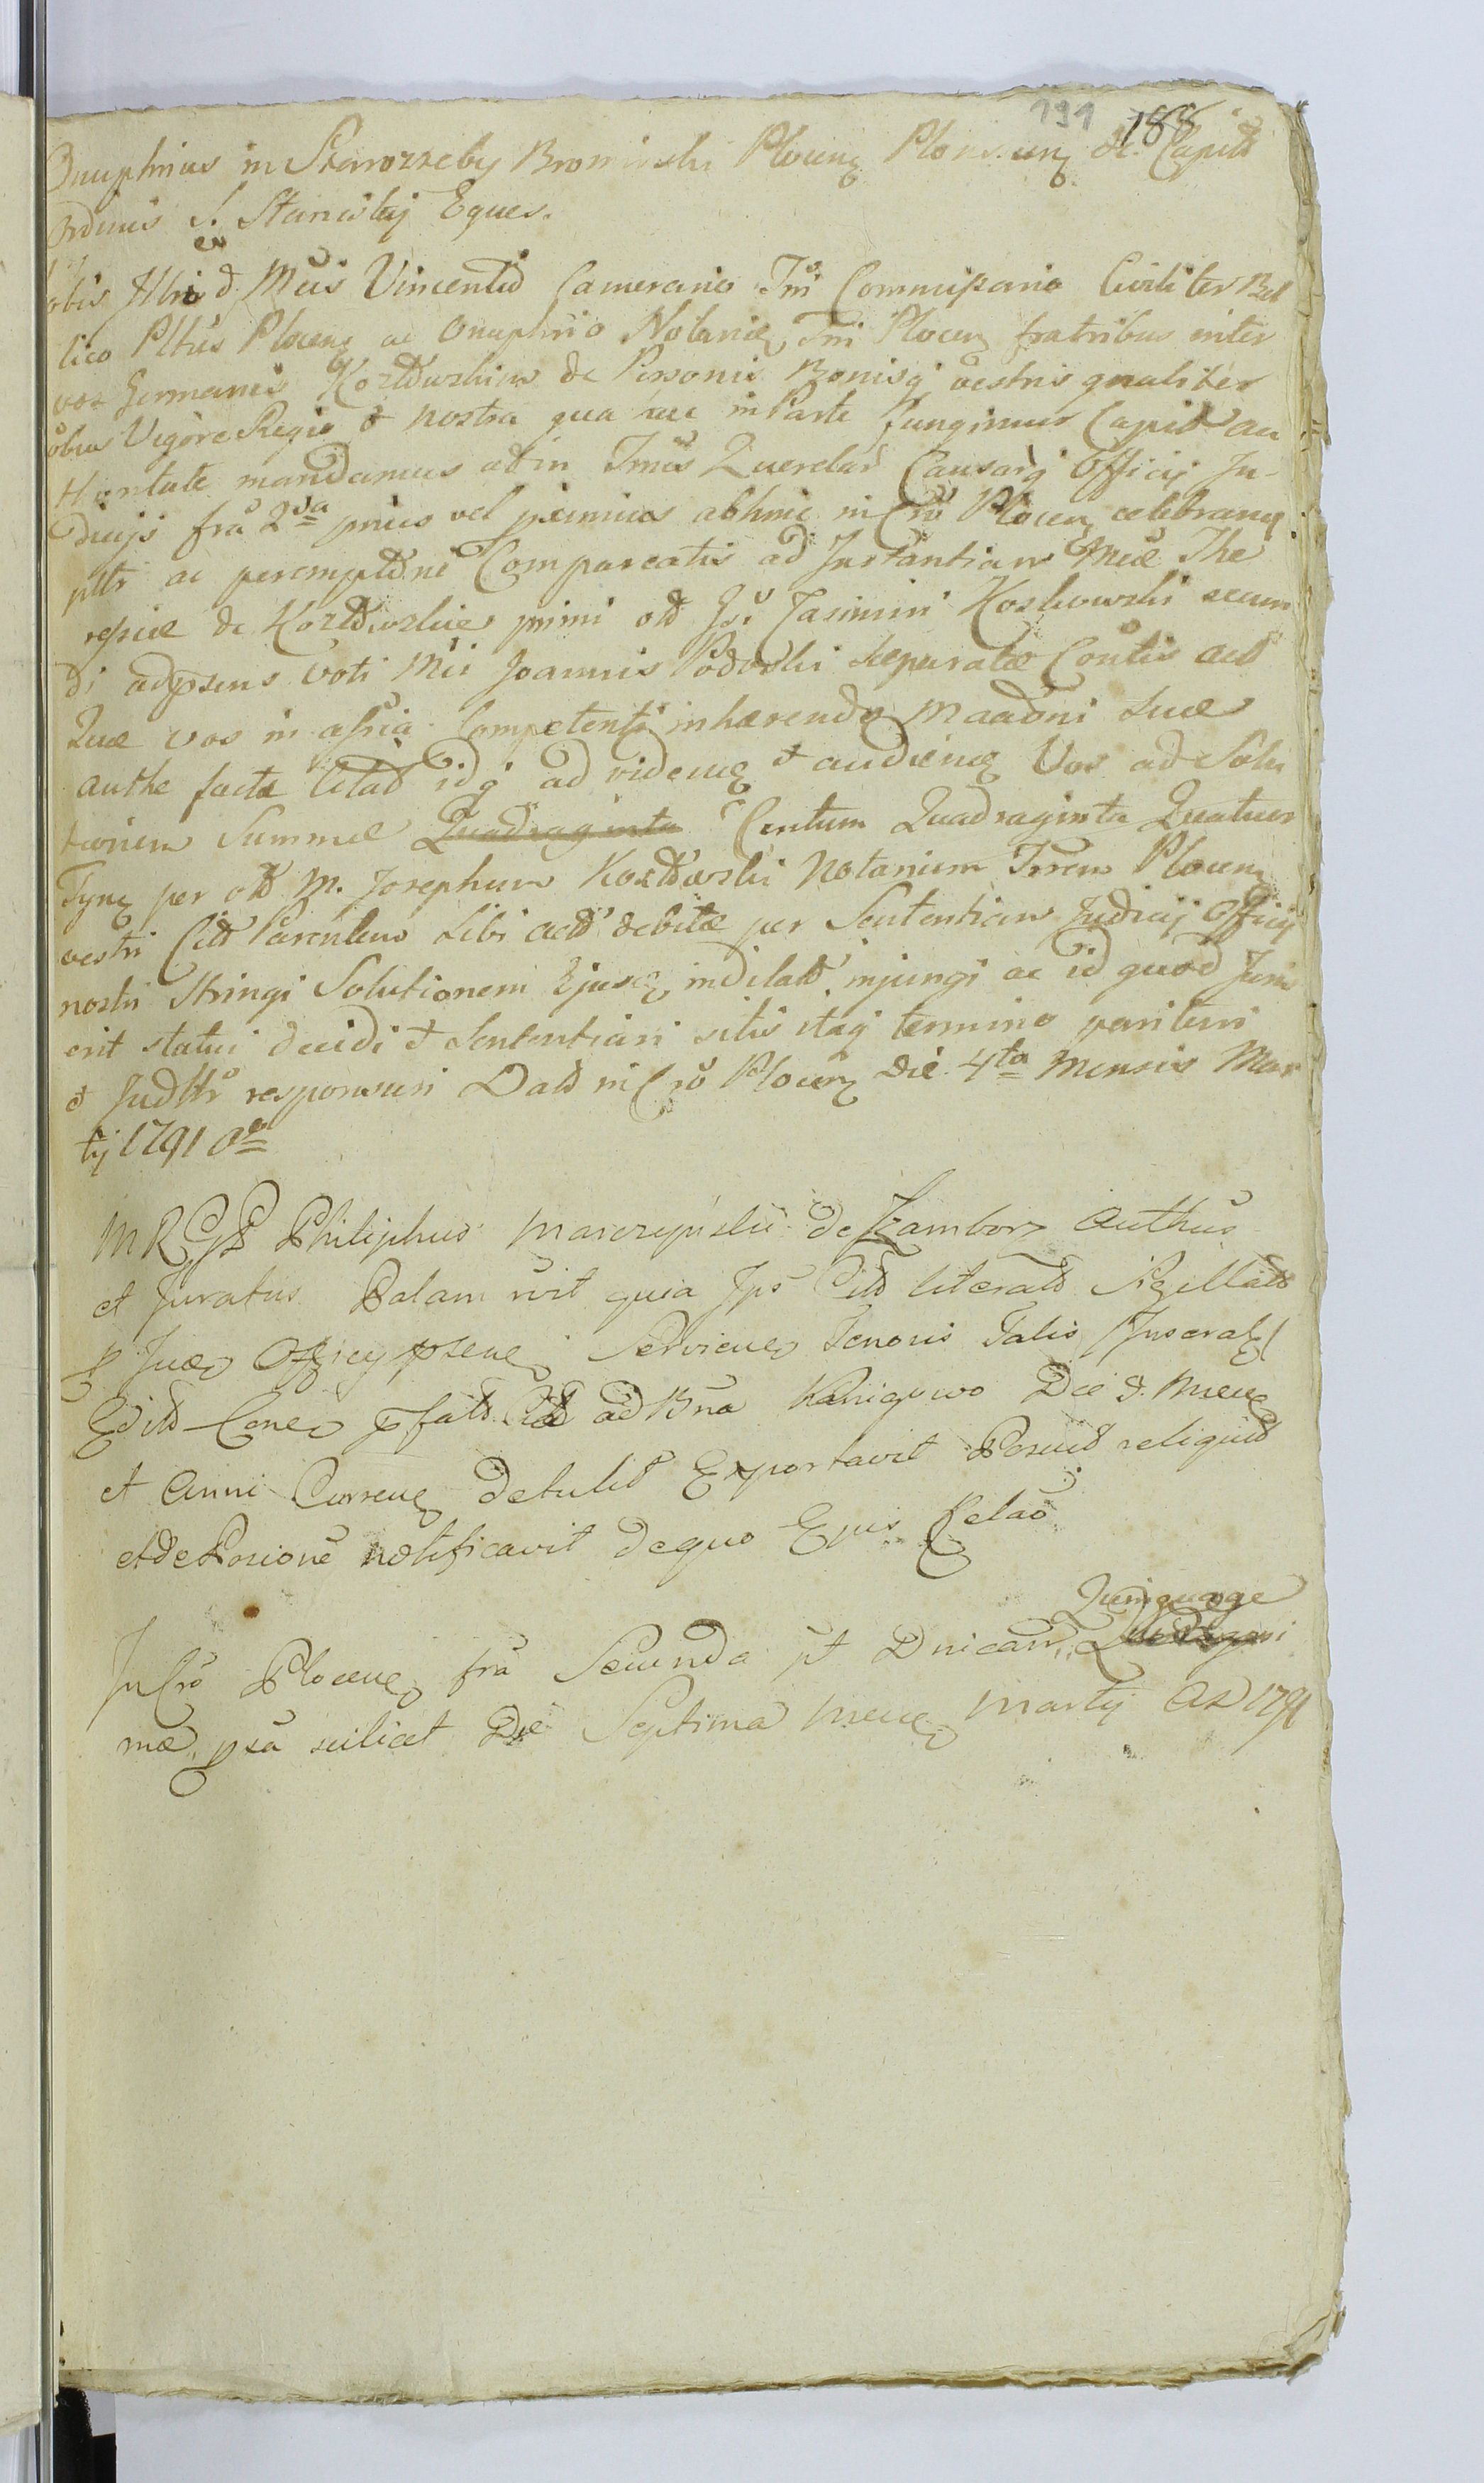 191 188
Onuphrius in Starorzeby Bromirski Plocenz Plons. enz &c. Capitt
Ordinis S. Stanislaj Eques.
Vobis Illri & Mcis Vincentio Camerario Trri Commissario Civiliter Bel
lico Pltus Plocenz ac Onuphrio Notario Trri Plocenz fratribus inter
vos Germanis de Personis Bonisq vestris gnaliter
obus Vigore Regia & nostra qua hac in Parte fungimur Capitt au
thoritate mandamus at in Tmis Querelar Causarq Officij Ju-
dicijs fra 2da pmis vel pximius abhinc in Cro Plocenz celebranz
pltr ac peremptne Compareatis ad Instantiam Mcae The
resiae de primi ott Gsi Casimiri Koskowski secun
di adpsens voti Mci Joannis Podoski separatae Contis Act
Quae vos in assia Competenti inhaerendo maaoni suae
authe facta Citat idq ad videnz & audienz Vos ad Solu
tionem Summae Quadraginta Centum Quadraginta Quatuor
Tynz per ott M. Josephum Notarium Trren Plocenz
vestri Citt Parentem sibi actt debitae per Sententiam Judicij Officij
nostri Stringi Solutionem Ejusq indilatt. injungi ac id quod Juris
erit statui decidi & Sententiari sitis itaq termino parituri
& Judltr responsuri Datt in Cro Plocenz die 4ta Mensis Mar
tij 1791 Ao
M R G P Philiphus de Zambrz Authus
et Juratus Palam rvit quia Ips Citt literatt Sigillatt
p Judo Officij psenz Servienz Tenoris Talis Inseratz
Editt Conez pfatt Citt ad Bna Kanigowo Die & Menz
et Anni Currenz Detulit Exportavit Posuit reliquit
et de Posione notificavit de quo Ejus Relao
In Cro Plocenz fra Secunda pt Dnicam Quinquage
si
mae, pxa scilicet Die Septima Menz Martij AD 1791